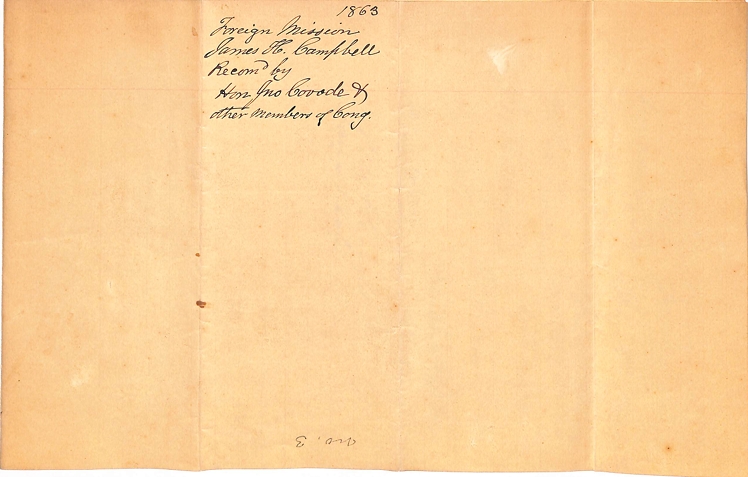 1863
Foreign Mission
James H. Campbell
Recomd by
Hon Jno Covode &
other Members of Cong.